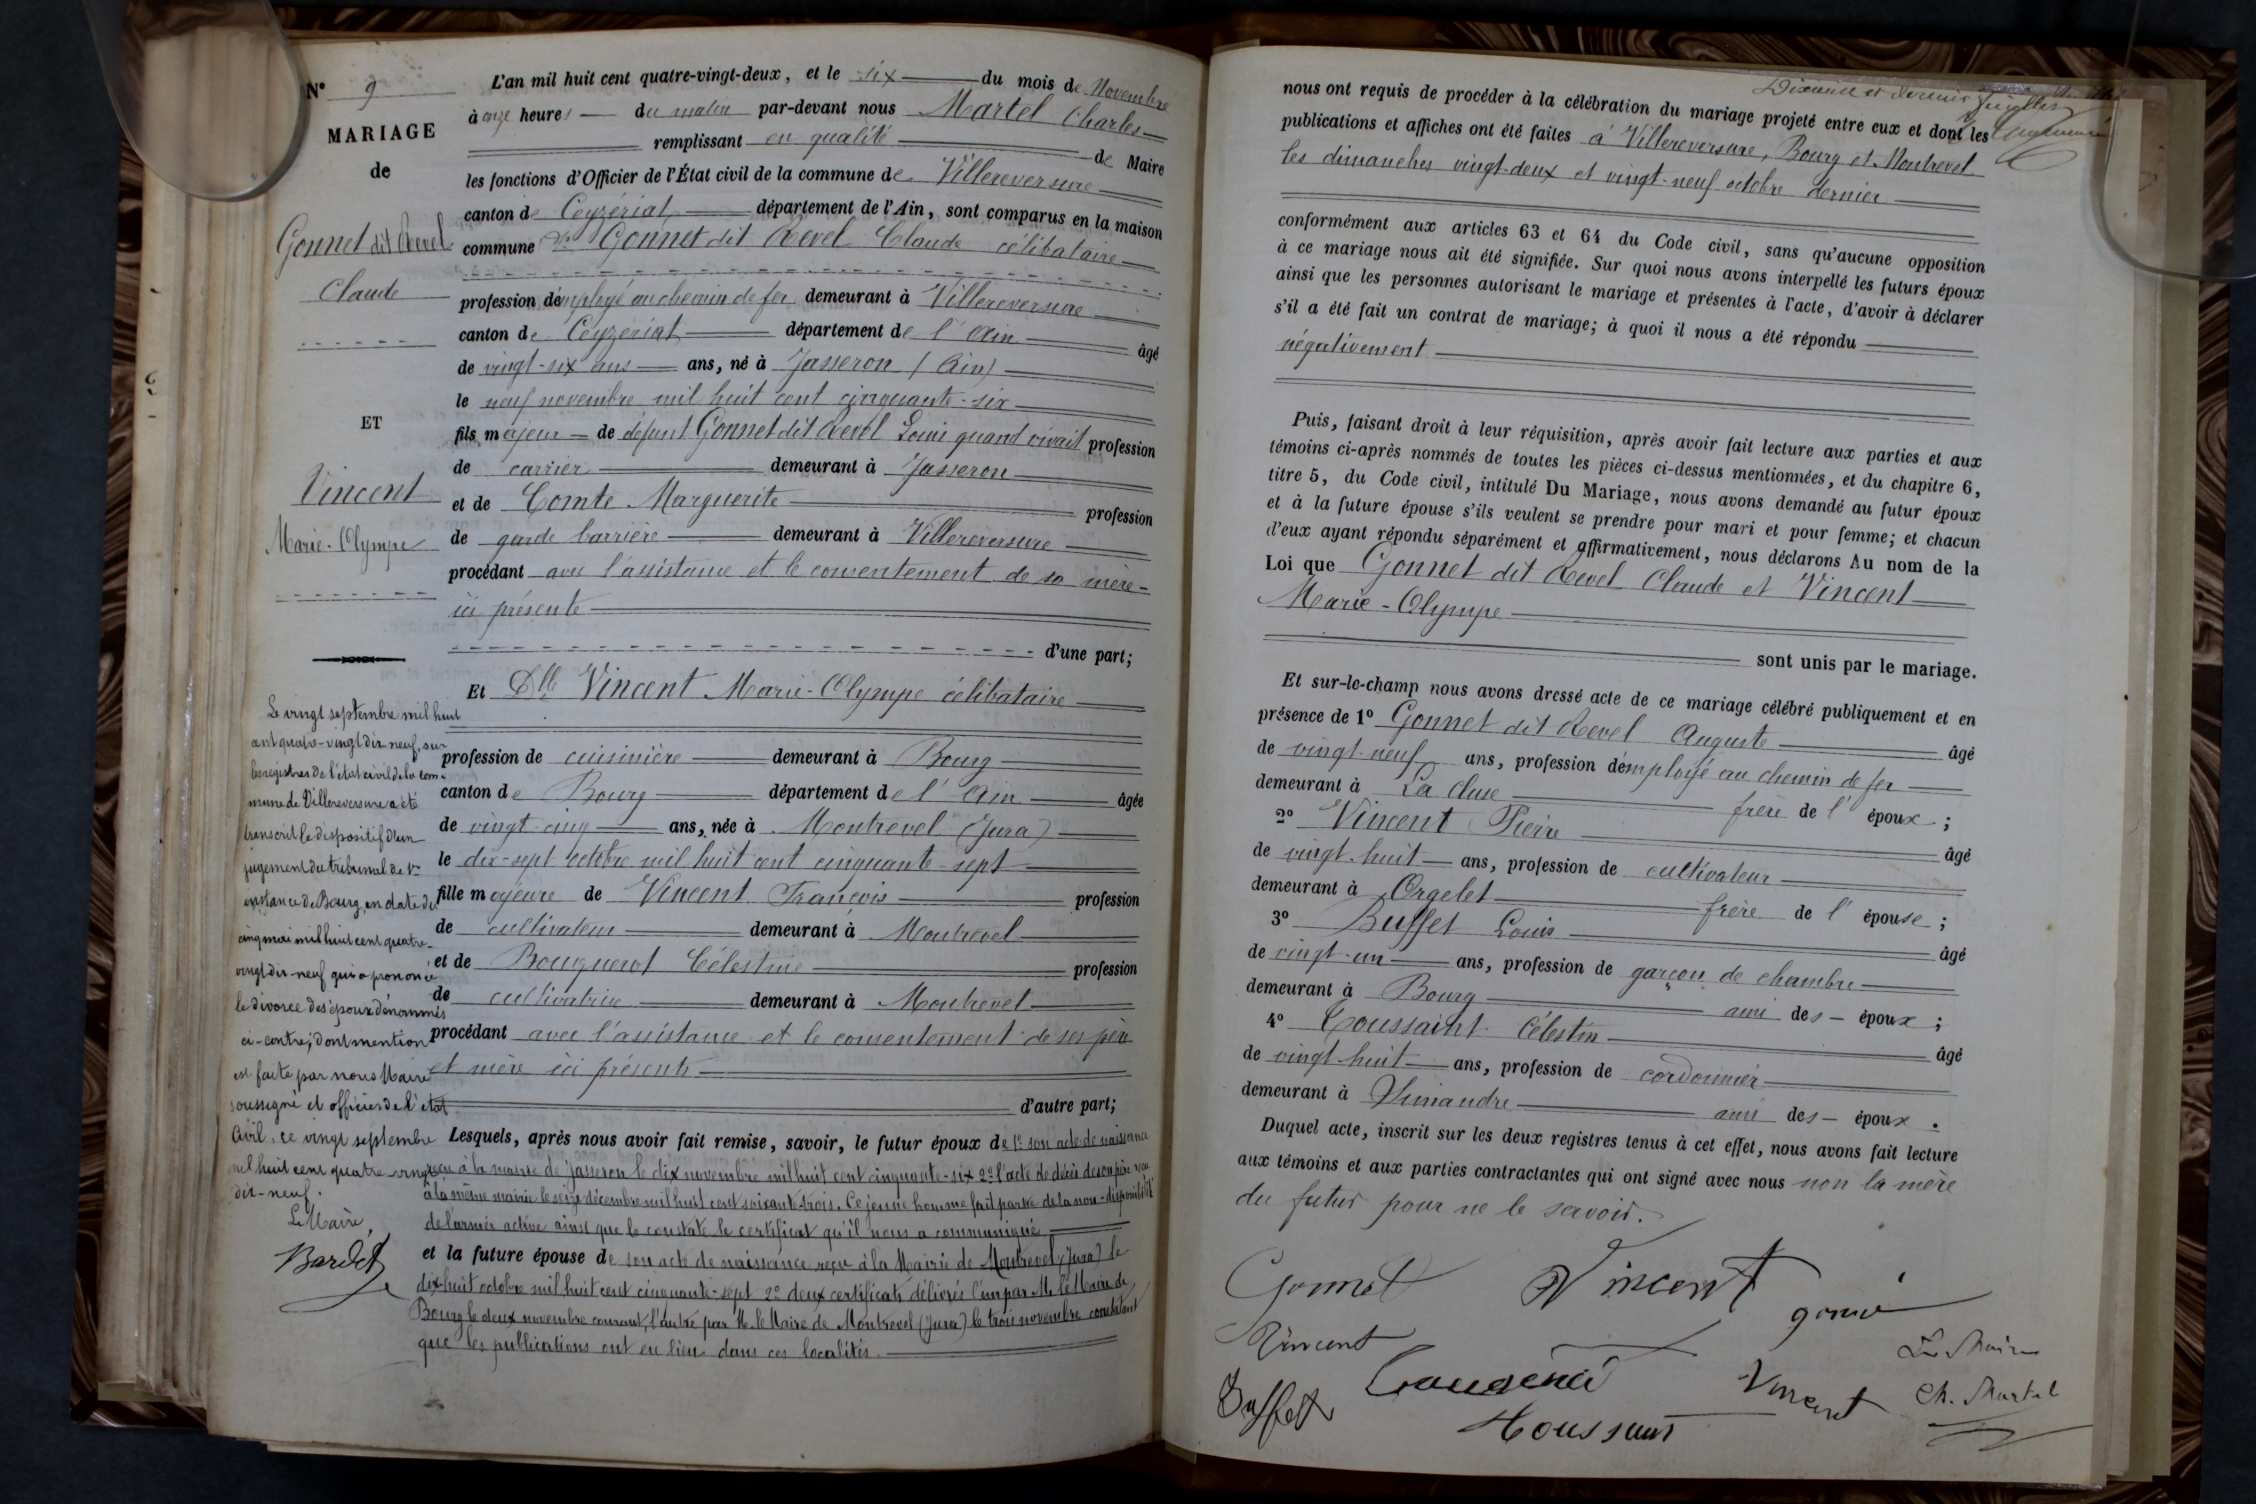 N° 9
MARIAGE
de
Gonnet dit Revel
Claude
ET
Vincent
Marie-Olympe
Le vingt septembre mil huit
cent quatre-vingt dix-neuf, sur
les registres de l'état civil de la com-
mune de Villereversure a été
transcrit le dispositif d'un
jugement du tribunal de 1re
instance de Bourg, en date du
cinq mai mil huit cent quatre-
vingt dix-neuf qui a prononcé
le divorce des époux dénommés
ci-contre; dont mention
est faite par nous Maire
soussigné et officier de l'état
civil, ce vingt septembre
mil huit cent quatre-vingt
dix-neuf.
Le Maire,
Bardet
L'an mil huit cent quatre-vingt-deux, et le six du mois de Novembre
à onze heures du matin par-devant nous Martel Charles
remplissant en qualité de Maire
les fonctions d'Officier de l'État civil de la commune de Villereversure
canton de Ceyzériat département de l'Ain, sont comparus en la maison
commune Gonnet dit Revel Claude célibataire
profession d'employé au chemin de fer demeurant à Villereversure
canton de Ceyzériat département de l'Ain âgé
de vingt-six ans ans, né à Jasseron (Ain)
le neuf novembre mil huit cent cinquante-six
fils majeur de défunt Gonnet dit Revel Louis quand vivait profession
de carrier demeurant à Jasseron
et de Comte Marguerite profession
de garde barrière demeurant à Villereversure
procédant avec l'assistance et le consentement de sa mère
ici présente
d'une part;
Et Dlle Vincent Marie-Olympe célibataire
profession de cuisinière demeurant à Bourg
canton de Bourg département de l'Ain âgée
de vingt-cinq ans, née à Montrevel (Jura)
le dix-sept octobre mil huit cent cinquante-sept
fille majeure de Vincent François profession
de cultivateur demeurant à Montrevel
et de Bouquerot Célestine profession
de cultivatrice demeurant à Montrevel
procédant avec l'assistance et le consentement de ses père
et mère ici présents
d'autre part;
Lesquels, après nous avoir fait remise, savoir, le futur époux de 1° son acte de naissance
reçu à la mairie de Jasseron le dix novembre mil huit cent cinquante-six 2° l'acte de décès de son père reçu
à la même mairie le seize décembre mil huit cent soixante-trois. Ce jeune homme fait partie de la non-disponibilité
de l'armée active ainsi que le constate le certificat qu'il nous a communiqué
et la future épouse de son acte de naissance reçu à la Mairie de Montrevel (Jura) le
dix-huit octobre mil huit cent cinquante-sept 2° deux certificats délivrés l'un par M. le Maire de
Bourg le deux novembre courant, l'autre par M. le Maire de Montrevel (Jura) le trois novembre constatant
que les publications ont eu lieu dans ces localités.
Dixième et dernier feuillet
nous ont requis de procéder à la célébration du mariage projeté entre eux et dont les
publications et affiches ont été faites à Villereversure, Bourg et Montrevel
les dimanches vingt-deux et vingt-neuf octobre dernier
conformément aux articles 63 et 64 du Code civil, sans qu'aucune opposition
à ce mariage nous ait été signifiée. Sur quoi nous avons interpellé les futurs époux
ainsi que les personnes autorisant le mariage et présentes à l'acte, d'avoir à déclarer
s'il a été fait un contrat de mariage; à quoi il nous a été répondu
négativement
Puis, faisant droit à leur réquisition, après avoir fait lecture aux parties et aux
témoins ci-après nommés de toutes les pièces ci-dessus mentionnées, et du chapitre 6,
titre 5, du Code civil, intitulé Du Mariage, nous avons demandé au futur époux
et à la future épouse s'ils veulent se prendre pour mari et pour femme; et chacun
d'eux ayant répondu séparément et affirmativement, nous déclarons Au nom de la
Loi que Gonnet dit Revel Claude et Vincent
Marie-Olympe
sont unis par le mariage.
Et sur-le-champ nous avons dressé acte de ce mariage célébré publiquement et en
présence de 1° Gonnet dit Revel Auguste âgé
de vingt-neuf ans, profession d'employé au chemin de fer
demeurant à La Cluse frère de l'époux;
2° Vincent Pierre âgé
de vingt-huit ans, profession de cultivateur
demeurant à Orgelet frère de l'épouse;
3° Buffet Louis âgé
de vingt-un ans, profession de garçon de chambre
demeurant à Bourg ami des époux;
4° Toussaint Célestin âgé
de vingt-huit ans, profession de cordonnier
demeurant à Simandre ami des époux.
Duquel acte, inscrit sur les deux registres tenus à cet effet, nous avons fait lecture
aux témoins et aux parties contractantes qui ont signé avec nous non la mère
du futur pour ne le savoir.
Gonnet
Vincent
Vincent
Le Maire
Buffet
Vincent
Ch. Martel
Toussaint